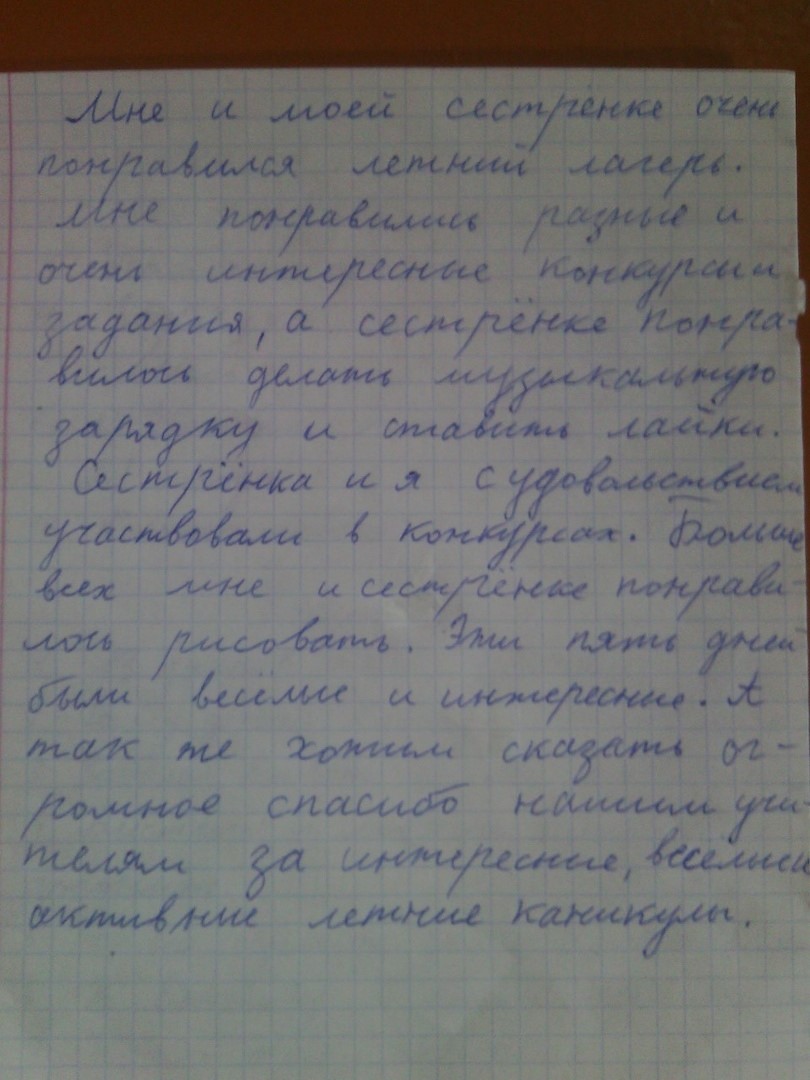 Мне и моей сестрёнке очень
понравился летний лагерь.
Мне понравились разные и
очень интересные конкурсы и
задания, а сестрёнке понра-
вилось делать музыкальную
зарядку и ставить лайки.
Сестрёнка и я с удовольствием
участвовали в конкурсах. Больше
всех мне и сестрёнке понрави-
лось рисовать. Эти пять дней
были весёлые и интересные. А
так же хотим сказать ог-
ромное спасибо нашим учи-
телям за интересные, весёлые и
активные летние каникулы.